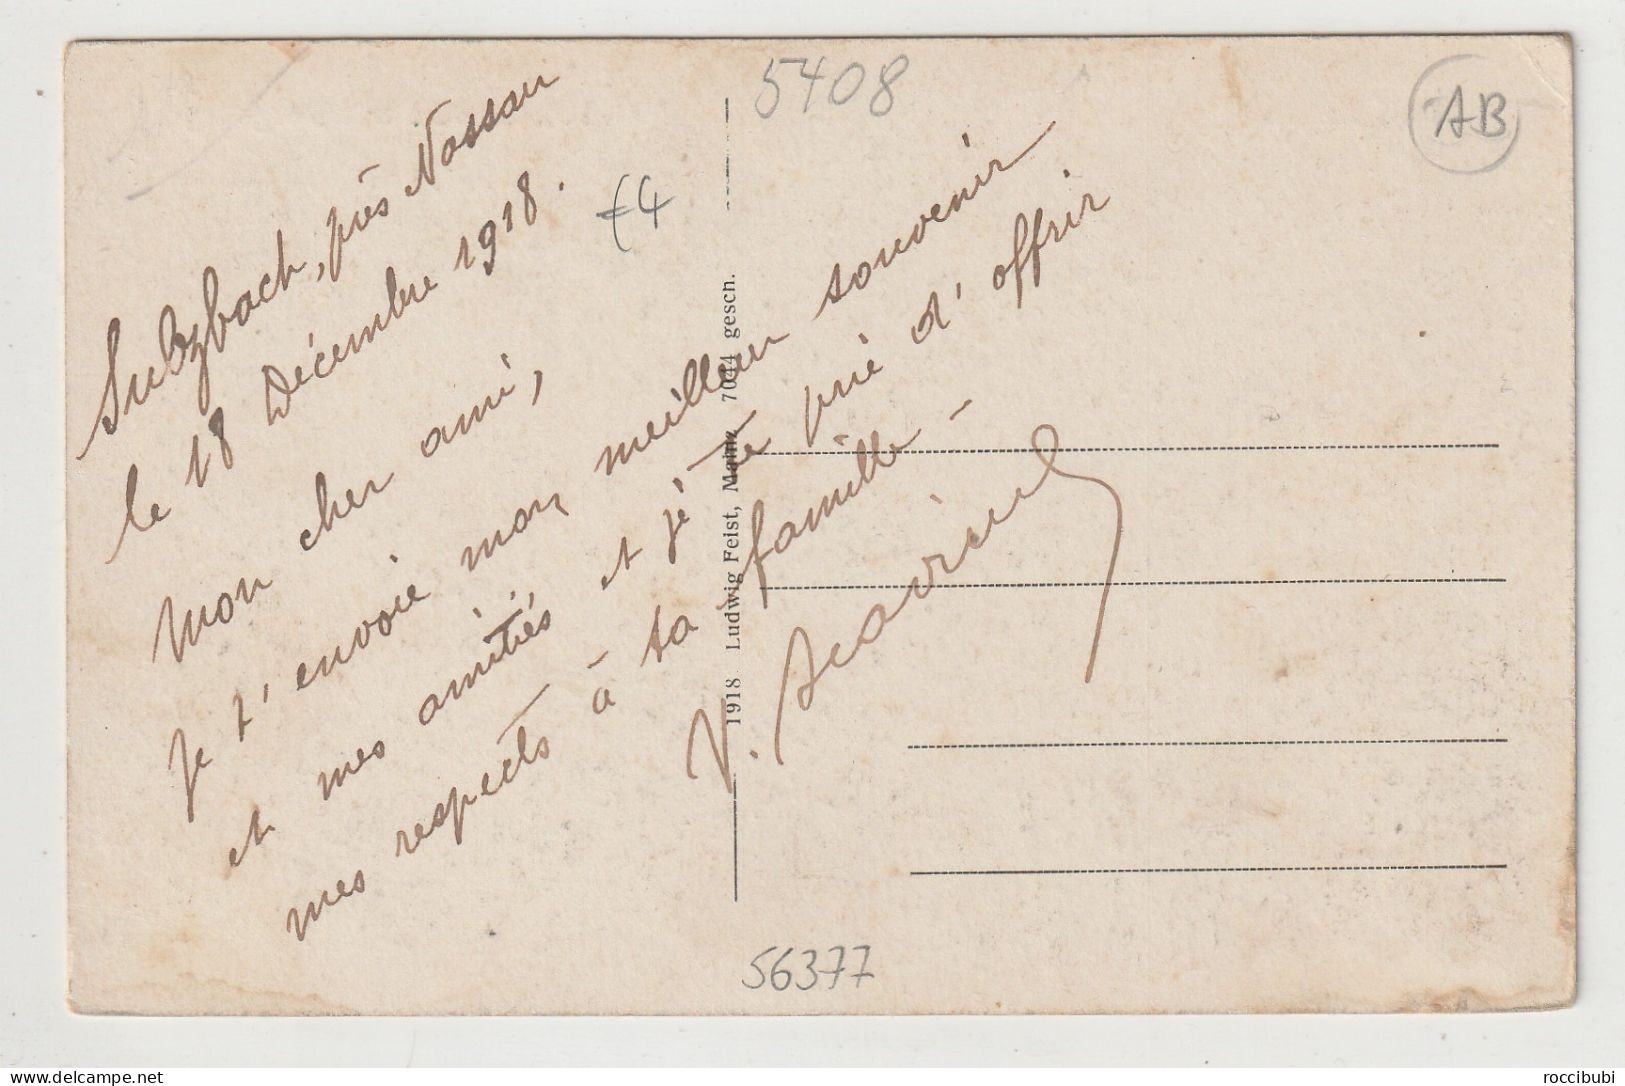 5408
AB
€4
Sulzbach, près Nassau
le 18 Décembre 1918.
Mon cher ami,
Je t'envoie mon meilleur souvenir
et mes amitiés et je te prie d'offrir
mes respects à ta famille -
V.
1918 Ludwig Feist, Mainz 7044 gesch.
56377
delcampe.net
roccibubi